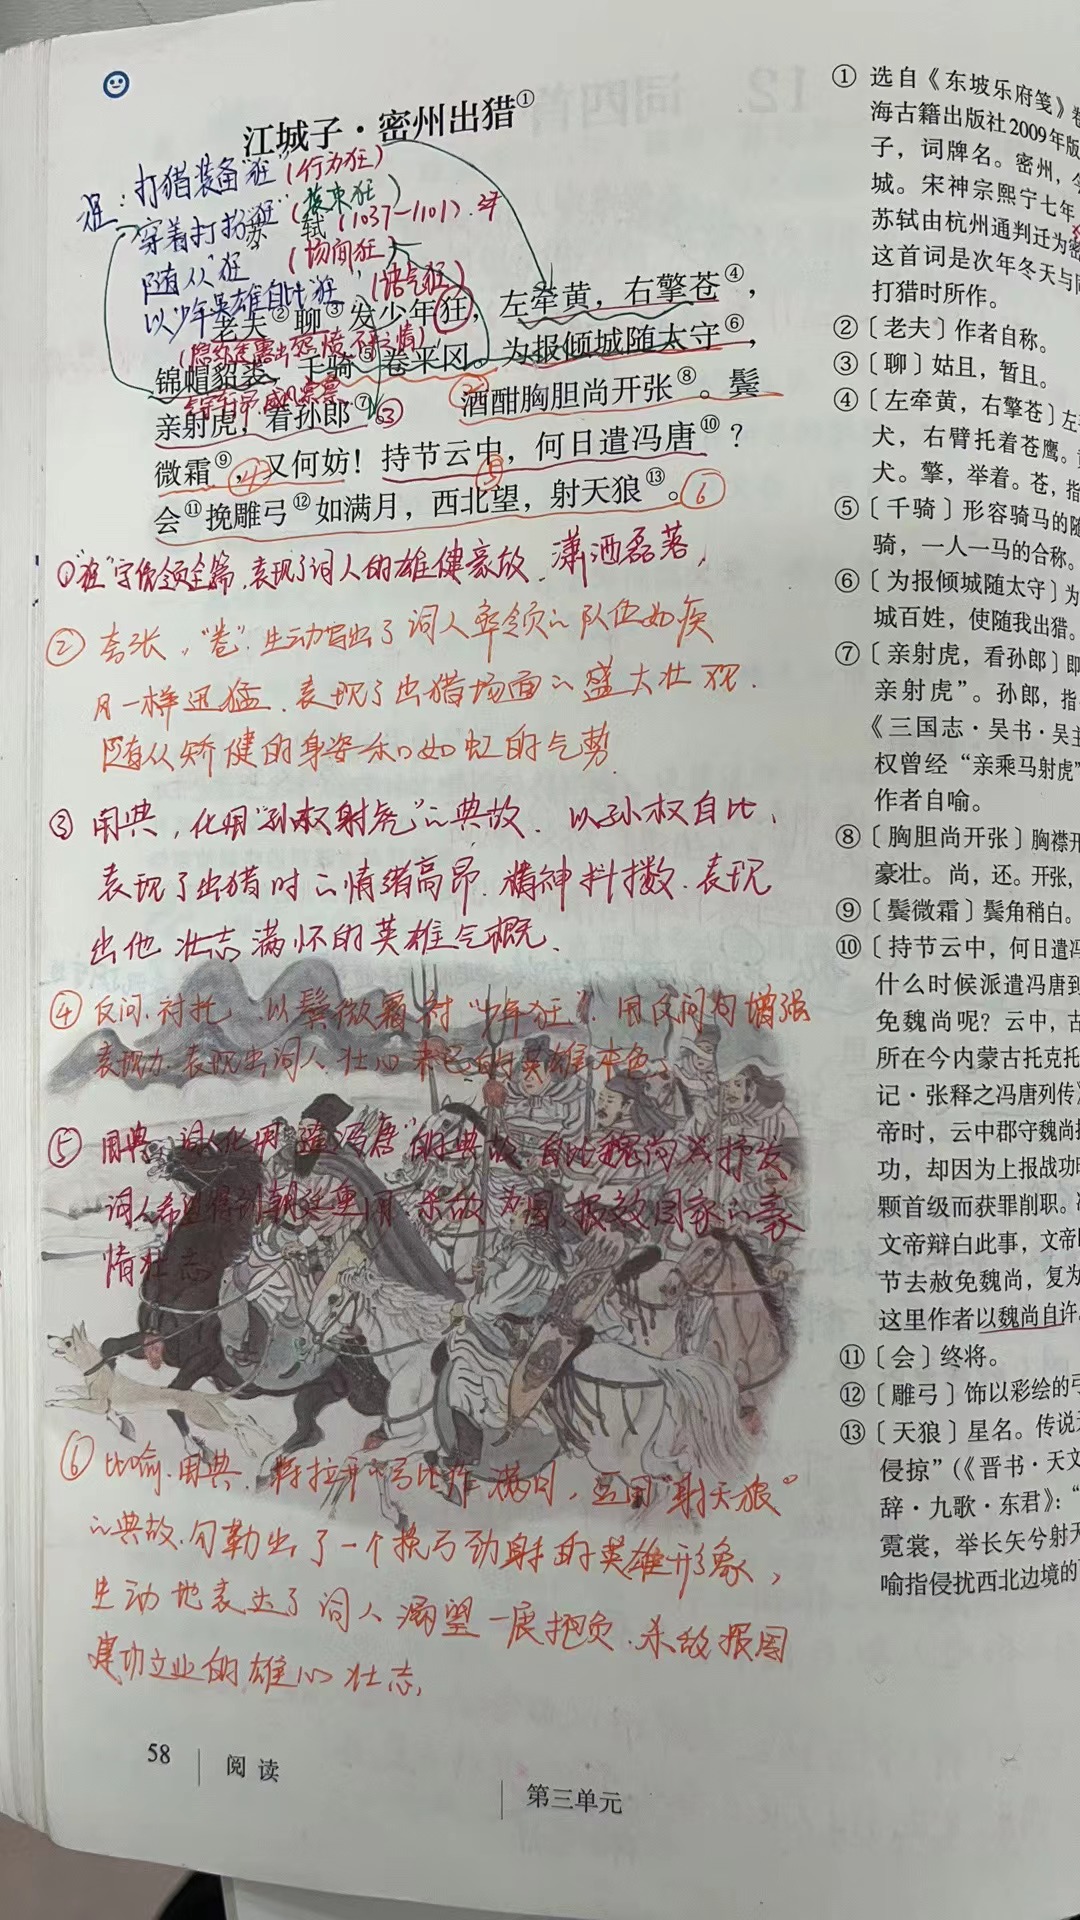 江城子·密州出猎①
狂：打猎装备“狂”(行为狂)
穿着打扮“狂”(装束狂)
苏 轼(1037—1101).
随从“狂 (场面狂
以少年英雄自比狂 (语气狂)
老夫②聊③发少年狂，左牵黄，右擎苍④，
锦帽貂裘，千骑⑤卷平冈。为报倾城随太守⑥，
亲射虎，看孙郎⑦ ③
酒酣胸胆尚开张⑧。鬓
微霜⑨，④又何妨！持节云中，何日遣冯唐⑩？
⑤
会⑪挽雕弓⑫如满月，西北望，射天狼⑬。⑥
①“狂”字统领全篇,表现了词人的雄健豪放、潇洒磊落,
② 夸张。“卷”.生动写出了词人率领的队伍如疾
风一样迅猛、表现了出猎场面的盛大壮观.
随从矫健的身姿和如虹的气势.
③ 用典，化用“孙权射虎”的典故.以孙权自比,
表现了出猎时的情绪高昂.精神抖擞.表现
出他壮志满怀的英雄气概.
④ 反问.衬托.以鬓微霜衬“少年狂”.用反问句增强
表现力.表现出词人壮心未已的英雄本色.
⑤ 用典.词人化用“遣冯唐”的典故.自比魏尚 抒发
词人希望得到朝廷重用 杀敌为国,报效国家的豪
情壮志.
⑥ 比喻.用典.将拉开的弓比作满月,运用“射天狼”
的典故.勾勒出了一个挽弓劲射的英雄形象,
生动地表达了词人渴望一展抱负.杀敌报国
建功立业的雄心壮志,
58 阅读
第三单元
① 选自《东坡乐府笺》
海古籍出版社2009年版
子，词牌名。密州，
城。宋神宗熙宁七年
苏轼由杭州通判迁为密
这首词是次年冬天与同
打猎时所作。
②〔老夫〕作者自称。
③〔聊〕姑且，暂且。
④〔左牵黄，右擎苍〕左
犬，右臂托着苍鹰。
犬。擎，举着。苍，指
⑤〔千骑〕形容骑马的随
骑，一人一马的合称。
⑥〔为报倾城随太守〕为
城百姓，使随我出猎。
⑦〔亲射虎，看孙郎〕即
亲射虎”。孙郎，指
《三国志·吴书·吴主
权曾经“亲乘马射虎”
作者自喻。
⑧〔胸胆尚开张〕胸襟开
豪壮。尚，还。开张，
⑨〔鬓微霜〕鬓角稍白。
⑩〔持节云中，何日遣冯
什么时候派遣冯唐到
免魏尚呢？云中，古
所在今内蒙古托克托
记·张释之冯唐列传》
帝时，云中郡守魏尚
功，却因为上报战功时
颗首级而获罪削职。
文帝辩白此事，文帝
节去赦免魏尚，复为
这里作者以魏尚自许
⑪〔会〕终将。
⑫〔雕弓〕饰以彩绘的弓
⑬〔天狼〕星名。传说
侵掠”(《晋书·天文
辞·九歌·东君》：“
霓裳，举长矢兮射天
喻指侵扰西北边境的